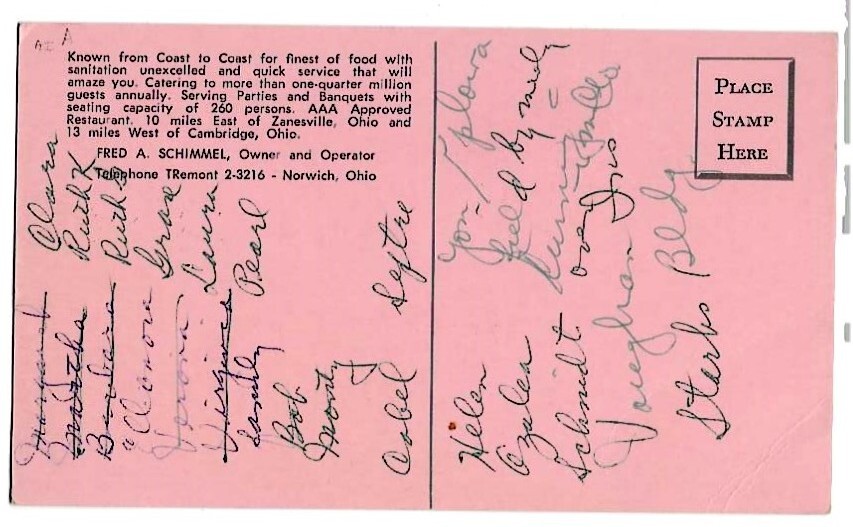 Known from Coast to Coast for finest of food with
sanitation unexcelled and quick service that will
amaze you. Catering to more than one-quarter million
guests annually. Serving Parties and Banquets with
seating capacity of 260 persons. AAA Approved
Restaurant. 10 miles East of Zanesville, Ohio and
13 miles West of Cambridge, Ohio.
FRED A. SCHIMMEL, Owner and Operator
Telephone TRemont 2-3216 - Norwich, Ohio
PLACE
STAMP
HERE
Margaret Clara
Martha Ruth K
Barbara Ruth
Grace
Laura
Virginia Pearl
Sandy
Bob
Monty
Helen
Azalea
Schmidt over
Vaughan Bldg.
Starks